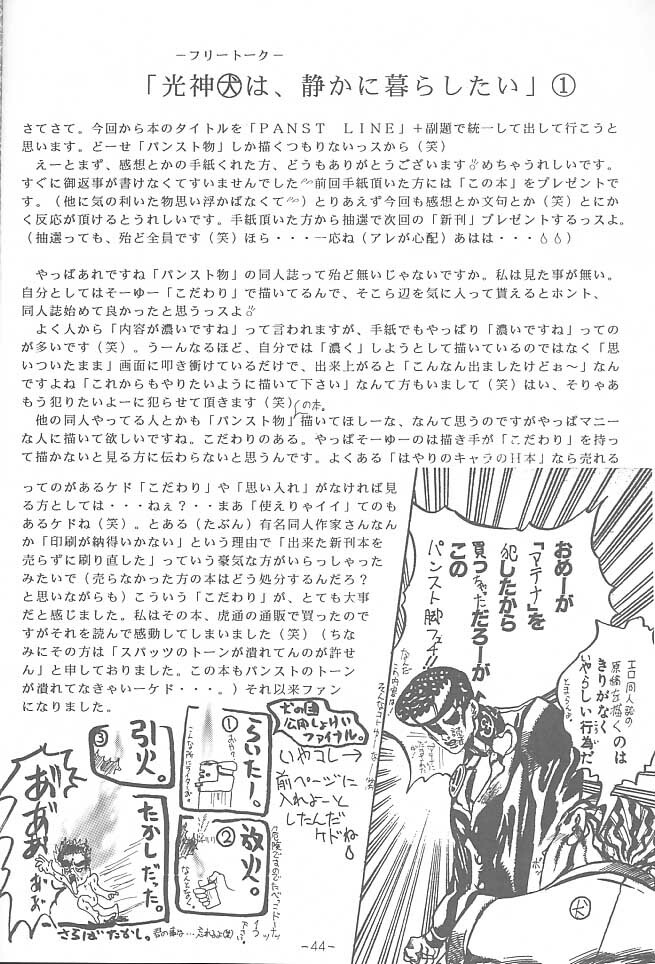 －フリートーク－
「光神㊛は、静かに暮らしたい」①
さてさて。今回から本のタイトルを「ＰＡＮＳＴ　ＬＩＮＥ」＋副題で統一して出して行こうと
思います。どーせ「パンスト物」しか描くつもりないっスから（笑）
えーとまず、感想とかの手紙くれた方、どうもありがとうございますめちゃうれしいです。
すぐに御返事が書けなくてすいませんでした前回手紙頂いた方には「この本」をプレゼントで
す。（他に気の利いた物思い浮かばなくて）とりあえず今回も感想とか文句とか（笑）とにか
く反応が頂けるとうれしいです。手紙頂いた方から抽選で次回の「新刊」プレゼントするっスよ。
（抽選っても、殆ど全員です（笑）ほら・・・一応ね（アレが心配）あはは・・・）
やっぱあれですね「パンスト物」の同人誌って殆ど無いじゃないですか。私は見た事が無い。
自分としてはそーゆー「こだわり」で描いてるんで、そこら辺を気に入って貰えるとホント、
同人誌始めて良かったと思うっスよ
よく人から「内容が濃いですね」って言われますが、手紙でもやっぱり「濃いですね」っての
が多いです（笑）。うーんなるほど、自分では「濃く」しようとして描いているのではなく「思
いついたまま」画面に叩き衝けているだけで、出来上がると「こんなん出ましたけどぉ～」なん
ですよね「これからもやりたいように描いて下さい」なんて方もいまして（笑）はい、そりゃあ
もう犯りたいよーに犯らせて頂きます（笑）
の本。
他の同人やってる人とかも「パンスト物」描いてほしーな、なんて思うのですがやっぱマニー
な人に描いて欲しいですね。こだわりのある。やっぱそーゆーのは描き手が「こだわり」を持っ
て描かないと見る方に伝わらないと思うんです。よくある「はやりのキャラのＨ本」なら売れる
ってのがあるケド「こだわり」や「思い入れ」がなければ見
る方としては・・・ねぇ？・・まあ「使えりゃイイ」てのも
あるケドね（笑）。とある（たぶん）有名同人作家さんなん
か「印刷が納得いかない」という理由で「出来た新刊本を
売らずに刷り直した」っていう豪気な方がいらっしゃった
みたいで（売らなかった方の本はどう処分するんだろ？
と思いながらも）こういう「こだわり」が、とても大事
だと感じました。私はその本、虎通の通販で買ったので
ですがそれを読んで感動してしまいました（笑）（ちな
みにその方は「スパッツのトーンが潰れてんのが許せ
ん」と申しておりました。この本もパンストのトーン
が潰れてなきゃいーケド・・・。）それ以来ファン
になりました。
おめーが
『マテナ』を
犯したから
買っちゃっただろーが
この
パンスト脚フェチ!!
エロ同人誌の
原稿を描くのは
きりがなく
いやらしい行為だ
犬
犬の国
公開しょけい
ファイナル。
いやコレ→
前ページに
入れよーと
したんだ
ケドね
①
ろいたー。
②
放火。
③
引火。
たかしだった。
さらばたかし。
－44－